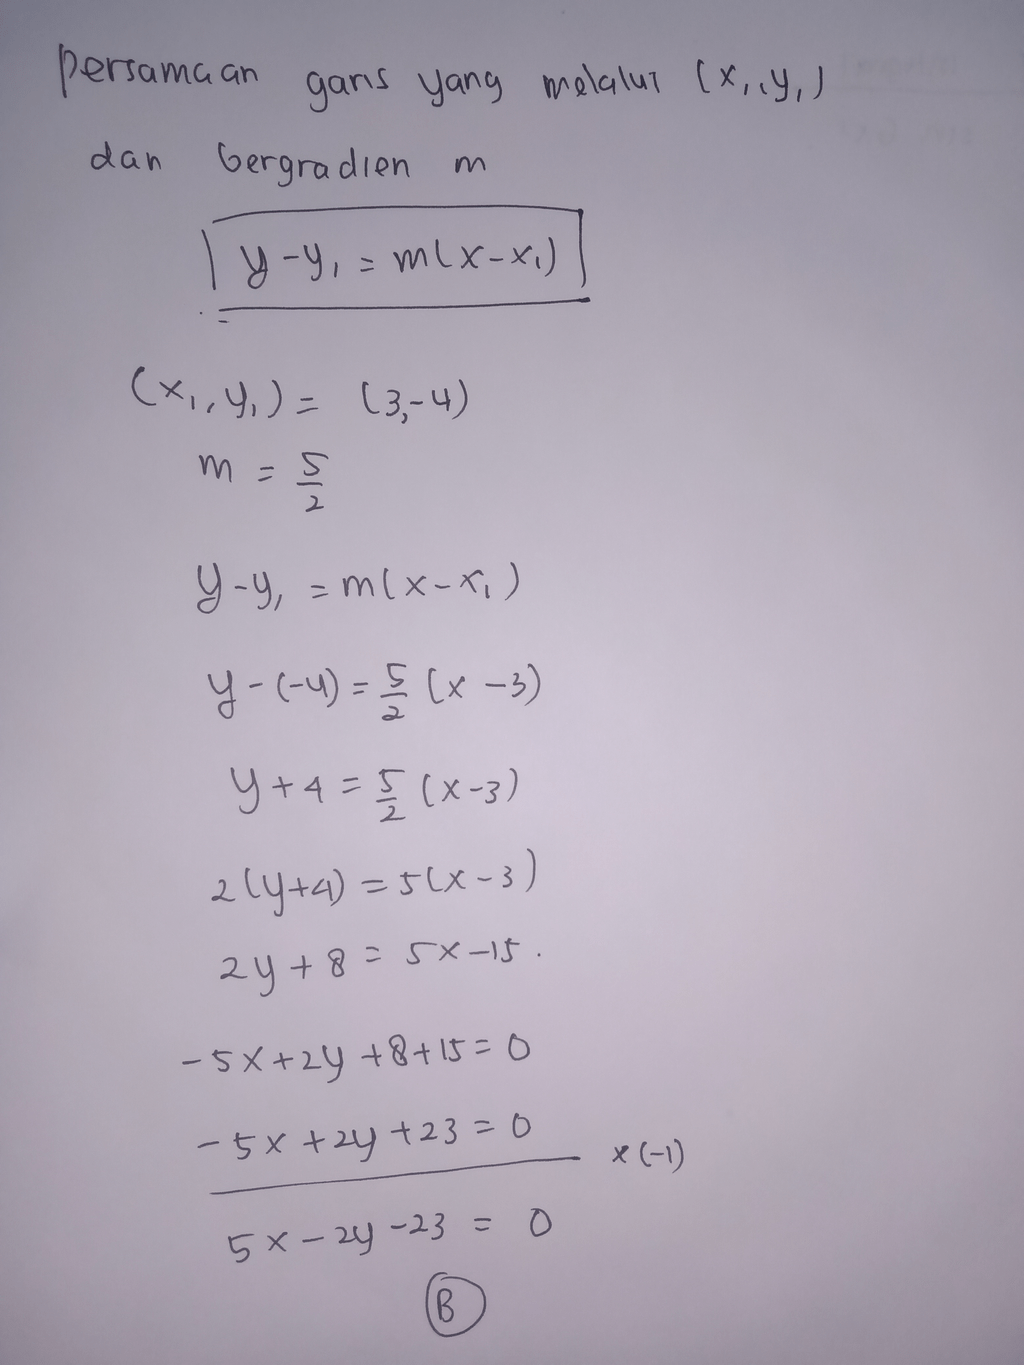 Persamaan garis yang melalui (x₁, y₁)
dan bergradien m
y - y₁ = m(x - x₁)
(x₁, y₁) = (3, -4)
m = 5/2
y - y₁ = m(x - x₁)
y - (-4) = 5/2 (x - 3)
y + 4 = 5/2 (x - 3)
2(y + 4) = 5(x - 3)
2y + 8 = 5x - 15.
-5x + 2y + 8 + 15 = 0
-5x + 2y + 23 = 0
x (-1)
5x - 2y - 23 = 0
B